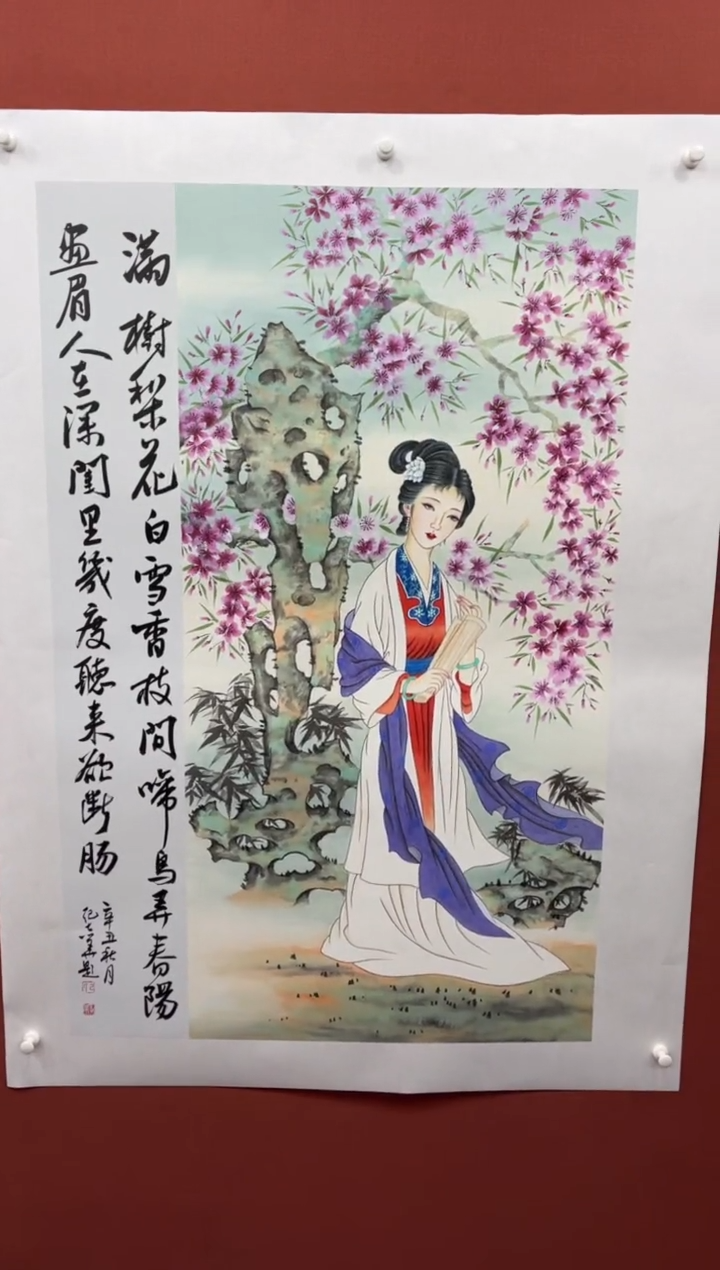 满樹梨花白雪香枝間啼鳥弄春陽
画眉人在深閨里幾度聽来欲断肠
辛丑秋月
題